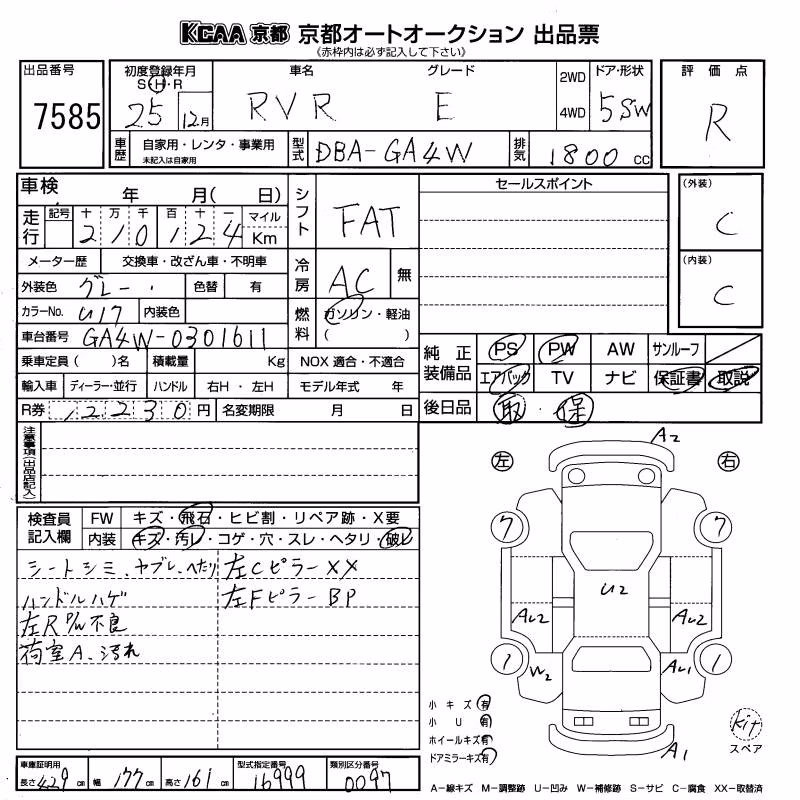 KCAA 京都 京都オートオークション 出品票
(赤枠内は必ず記入して下さい)
出品番号 7585
初度登録年月 S・H・R 25 12月
車名 RVR
グレード E
2WD
4WD
ドア・形状 5 SW
評価点 R
車歴 自家用・レンタ・事業用
未記入は自家用
型式 DBA-GA4W
排気 1800 cc
車検 年 月( 日)
シフト FAT
セールスポイント
(外装) C
走行 記号 十 万 千 百 十 一 マイル
2 1 0 1 2 4 Km
メーター歴 交換車・改ざん車・不明車
冷房 AC 無
(内装) C
外装色 グレー 色替 有
カラーNo. U17 内装色
燃料 ガソリン・軽油
( )
車台番号 GA4W-0301611
乗車定員( )名 積載量 Kg NOX 適合・不適合
純正装備品 PS PW AW サンルーフ
エアバック TV ナビ 保証書 取説
輸入車 ディーラー・並行 ハンドル 右H・左H モデル年式 年
R券 12230 円 名変期限 月 日
後日品 取・保
注意事項(出品店記入)
検査員記入欄 FW キズ・飛石・ヒビ割・リペア跡・X要
内装 キズ・汚レ・コゲ・穴・スレ・ヘタリ・破レ
シートシミ、ヤブレ、へたり 左Cピラー XX
ハンドルハゲ 左Fピラー BP
左R P/W 不良
荷室A、汚れ
A2
左 右
7 7
U2
AU2 AU2
1 W2 AU1 1
小キズ 有
小U 有
ホイールキズ 有
ドアミラーキズ 有
A1
kit
スペア
車庫証明用
長さ 429 cm 幅 177 cm 高さ 161 cm
型式指定番号 16999
類別区分番号 0097
A-線キズ M-調整跡 U-凹み W-補修跡 S-サビ C-腐食 XX-取替済